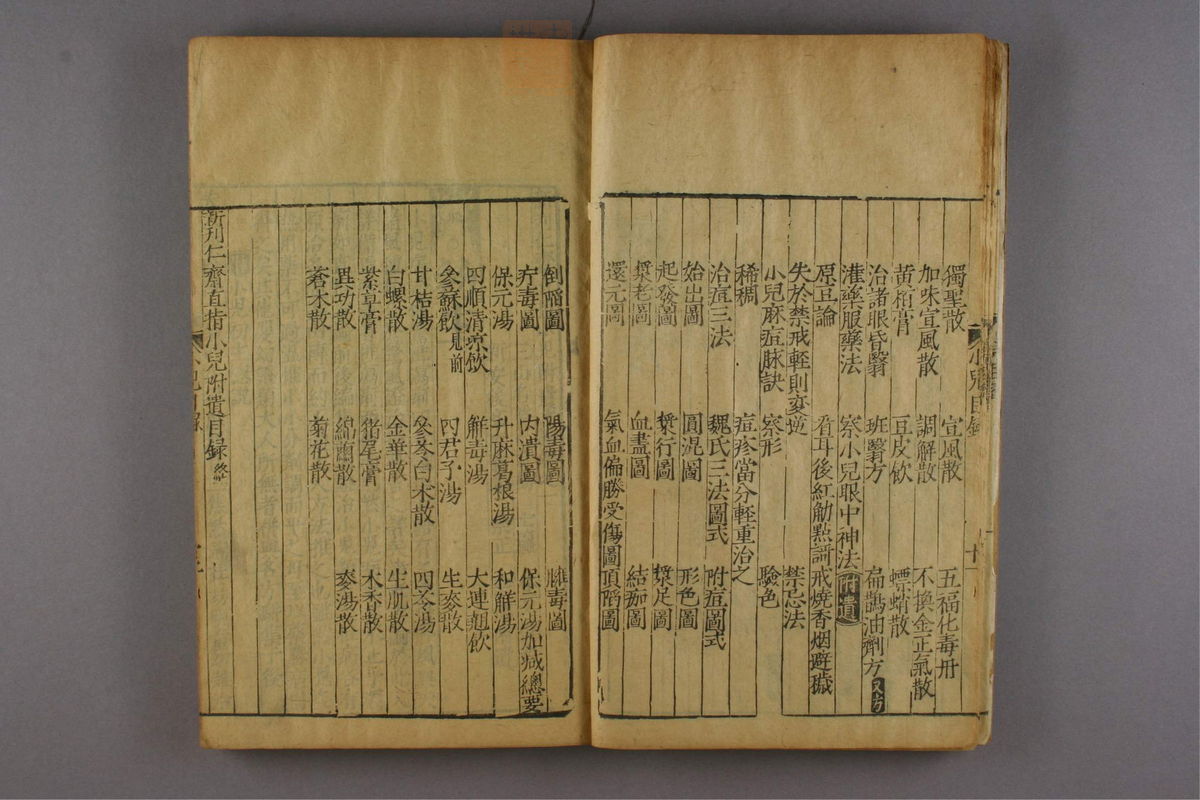 小兒目錄 十一
獨聖散 宣風散 五福化毒丹
加味宣風散 調解散 不換金正氣散
黃栢膏 豆皮飲 螵蛸散
治諸眼昏翳 班翳方 扁鵲油劑方 又方
灌藥服藥法 察小兒眼中神法 附遺
原豆論 看耳後紅觔㸃訶 戒燒香烟避穢
失於禁戒軽則変逆 禁忌法
小兒麻痘脉訣 察形 驗色
稀稠 痘疹當分軽重治之
治痘三法 魏氏三法圖式 附痘圖式
始出圖 圓混圖 形色圖
起發圖 漿行圖 漿足圖
漿老圖 血盡圖 結痂圖
還元圖 氣血偏勝受傷圖 頂䧟圖
倒䧟圖 陽毒圖 癰毒圖
疔毒圖 内潰圖 保元湯加减總要
保元湯 升麻葛根湯 和觧湯
四順清凉飲 觧毒湯 大連翹飲
參蘇飲見前 四君子湯 生麥散
甘桔湯 參苓白术散 四苓湯
白螺散 金華散 生肌散
紫草膏 猪尾膏 木香散
異功散 綿繭散 麥湯散
蒼术散 菊花散
新刊仁齋直指小兒附遺目録 終